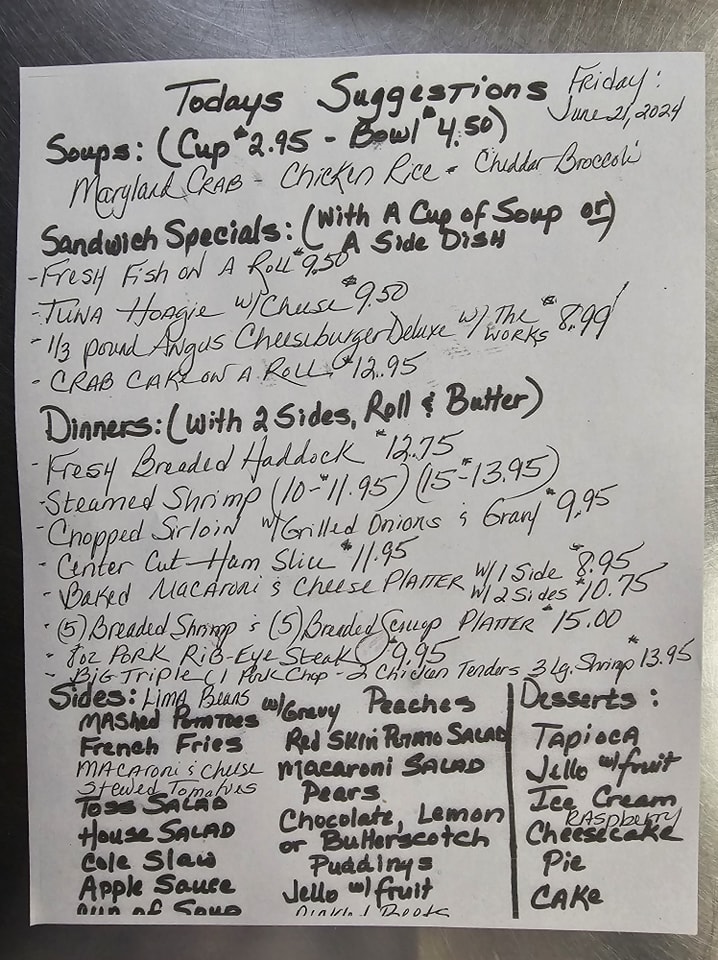 Todays Suggestions
Friday:
June 21, 2024
Soups: (Cup $2.95 - Bowl $4.50)
Maryland CRAB - Chicken Rice - Cheddar Broccoli
Sandwich Specials: (With A Cup of Soup or)
A Side Dish
- Fresh Fish on A Roll $9.50
- Tuna Hoagie w/Cheese $9.50
- 1/3 pound Angus Cheeseburger Deluxe w/ The Works $8.99
- CRAB CAKE ON A ROLL $12.95
Dinners: (With 2 Sides, Roll & Butter)
- Fresh Breaded Haddock $12.75
- Steamed Shrimp (10-$11.95) (15-$13.95)
- Chopped Sirloin w/Grilled Onions & Gravy $9.95
- Center Cut Ham Slice $11.95
- Baked Macaroni & Cheese Platter w/1 Side $8.95
w/2 Sides $10.75
- (5) Breaded Shrimp & (5) Breaded Scallop Platter $15.00
- 8oz Pork Rib-Eye Steak $9.95
- Big Triple (1 Pork Chop - 2 Chicken Tenders 3 Lg. Shrimp $13.95
Sides: Lima Beans
Mashed Potatoes w/Gravy
French Fries
Macaroni & Cheese
Stewed Tomatoes
Toss Salad
House Salad
Cole Slaw
Apple Sauce
Cup of Soup
Peaches
Red Skin Potato Salad
Macaroni Salad
Pears
Chocolate, Lemon
or Butterscotch
Puddings
Jello w/ fruit
Pickled Beets
Desserts:
Tapioca
Jello w/ fruit
Ice Cream
Raspberry
Cheesecake
Pie
Cake